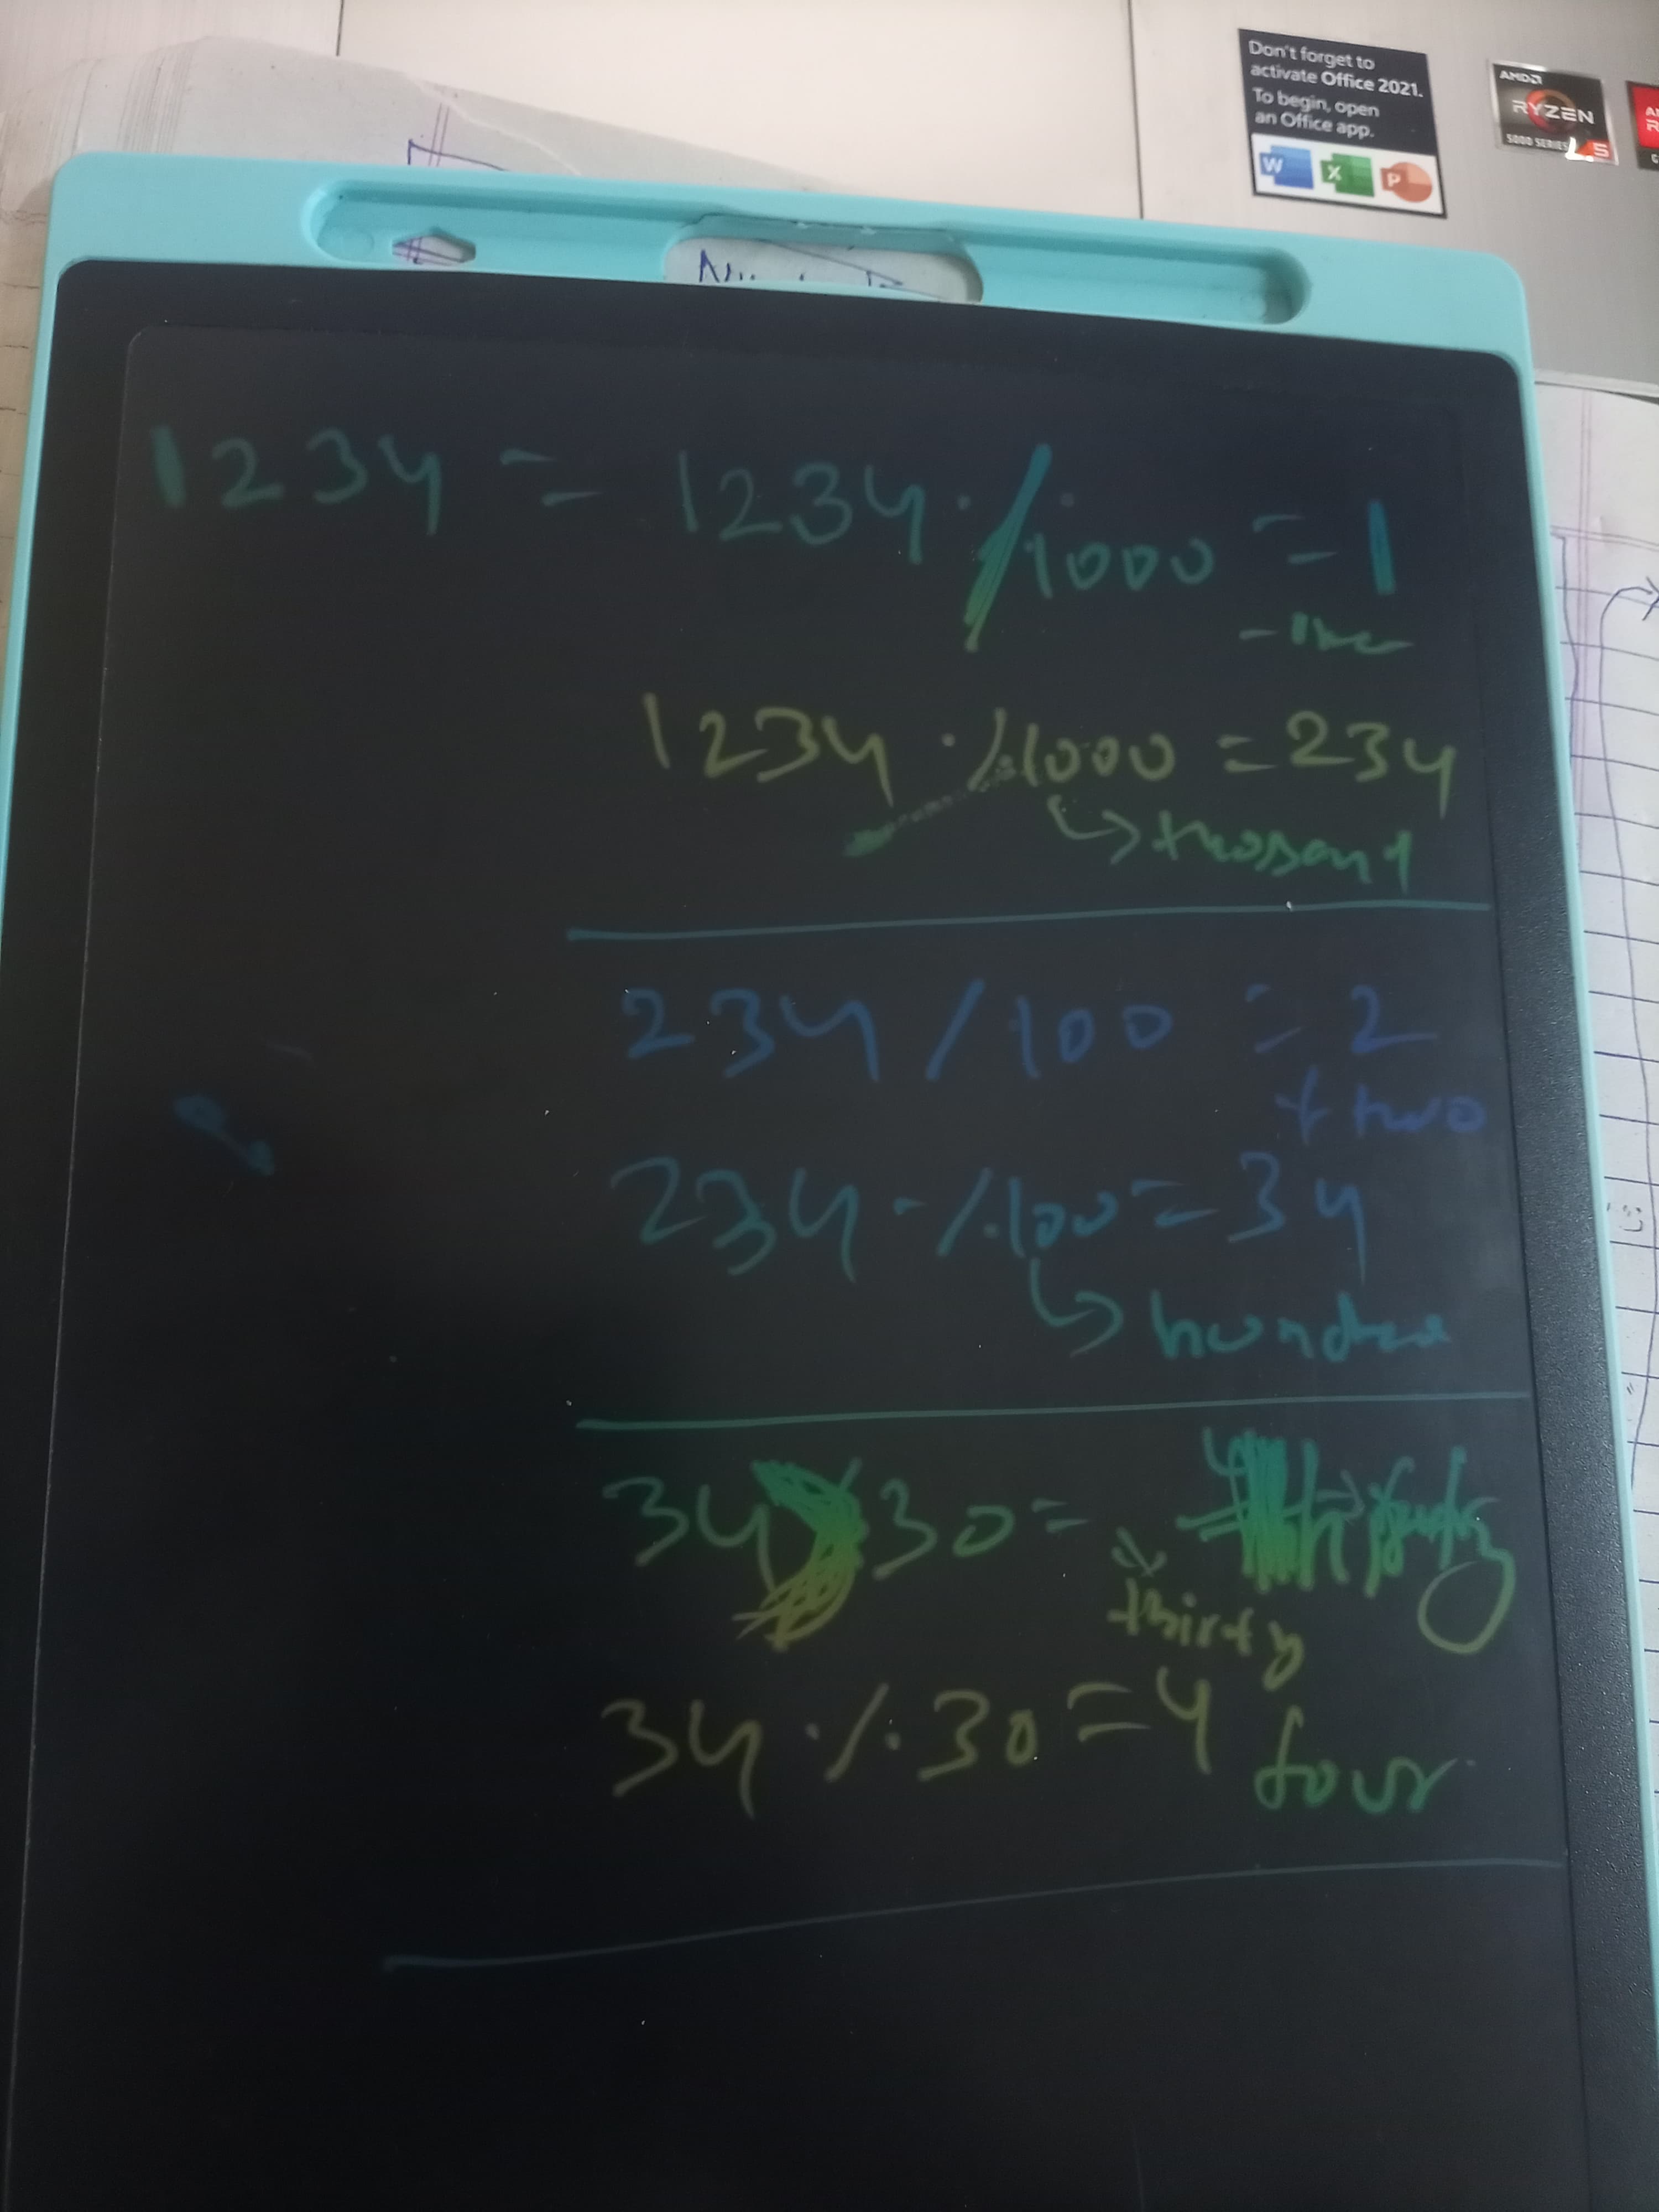 Don't forget to
activate Office 2021.
To begin, open
an Office app.
W X P
AMD
RYZEN
5000 SERIES 5
1234 = 1234 / 1000 = 1
1234 % 1000 = 234
↳ thosand
234 / 100 = 2
+ two
234 % 100 = 34
↳ hundre
34 30 =
thirty
34 % 30 = 4 four